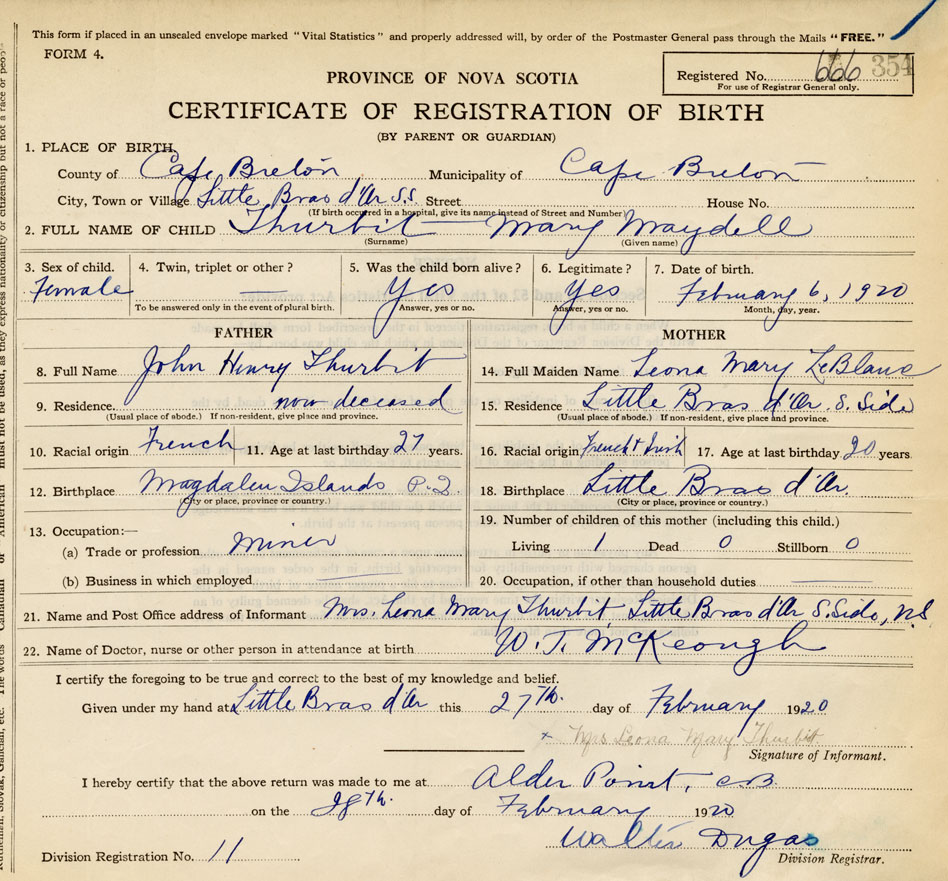 This form if placed in an unsealed envelope marked "Vital Statistics" and properly addressed will, by order of the Postmaster General pass through the Mails "FREE."
FORM 4.
PROVINCE OF NOVA SCOTIA
Registered No. 666 354
For use of Registrar General only.
CERTIFICATE OF REGISTRATION OF BIRTH
(BY PARENT OR GUARDIAN)
1. PLACE OF BIRTH,
County of Cape Breton Municipality of Cape Breton
City, Town or Village Little Bras d'Or S.S. Street House No.
(If birth occurred in a hospital, give its name instead of Street and Number)
2. FULL NAME OF CHILD Thurbit Mary Maydell
(Surname) (Given name)
3. Sex of child. 4. Twin, triplet or other? 5. Was the child born alive? 6. Legitimate? 7. Date of birth.
Female — Yes Yes February 6, 1920
To be answered only in the event of plural birth. Answer, yes or no. Answer, yes or no. Month, day, year.
FATHER MOTHER
8. Full Name John Henry Thurbit 14. Full Maiden Name Leona Mary LeBlanc
9. Residence. now deceased 15. Residence Little Bras d'Or. S. Side
(Usual place of abode.) If non-resident, give place and province. (Usual place of abode.) If non-resident, give place and province.
10. Racial origin French 11. Age at last birthday 27 years. 16. Racial origin French & Irish 17. Age at last birthday 20 years
12. Birthplace Magdalen Islands P.Q. 18. Birthplace Little Bras d'Or.
(City or place, province or country.) (City or place, province or country.)
13. Occupation:— 19. Number of children of this mother (including this child.)
(a) Trade or profession miner Living 1 Dead 0 Stillborn 0
(b) Business in which employed 20. Occupation, if other than household duties
21. Name and Post Office address of Informant Mrs. Leona Mary Thurbit Little Bras d'Or S. Side, N.S
22. Name of Doctor, nurse or other person in attendance at birth W. T. McKeough
I certify the foregoing to be true and correct to the best of my knowledge and belief.
Given under my hand at Little Bras d'Or this 27th. day of February 1920
x Mrs Leona Mary Thurbit
Signature of Informant.
I hereby certify that the above return was made to me at Alder Point, C.B.
on the 28th. day of February 1920
Walter Dugas
Division Registration No. 11 Division Registrar.